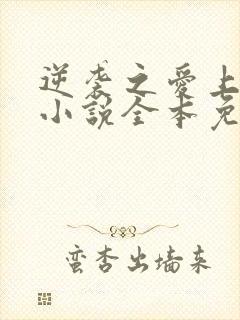 逆袭之爱上
小说全本免
蛮杏出墙来